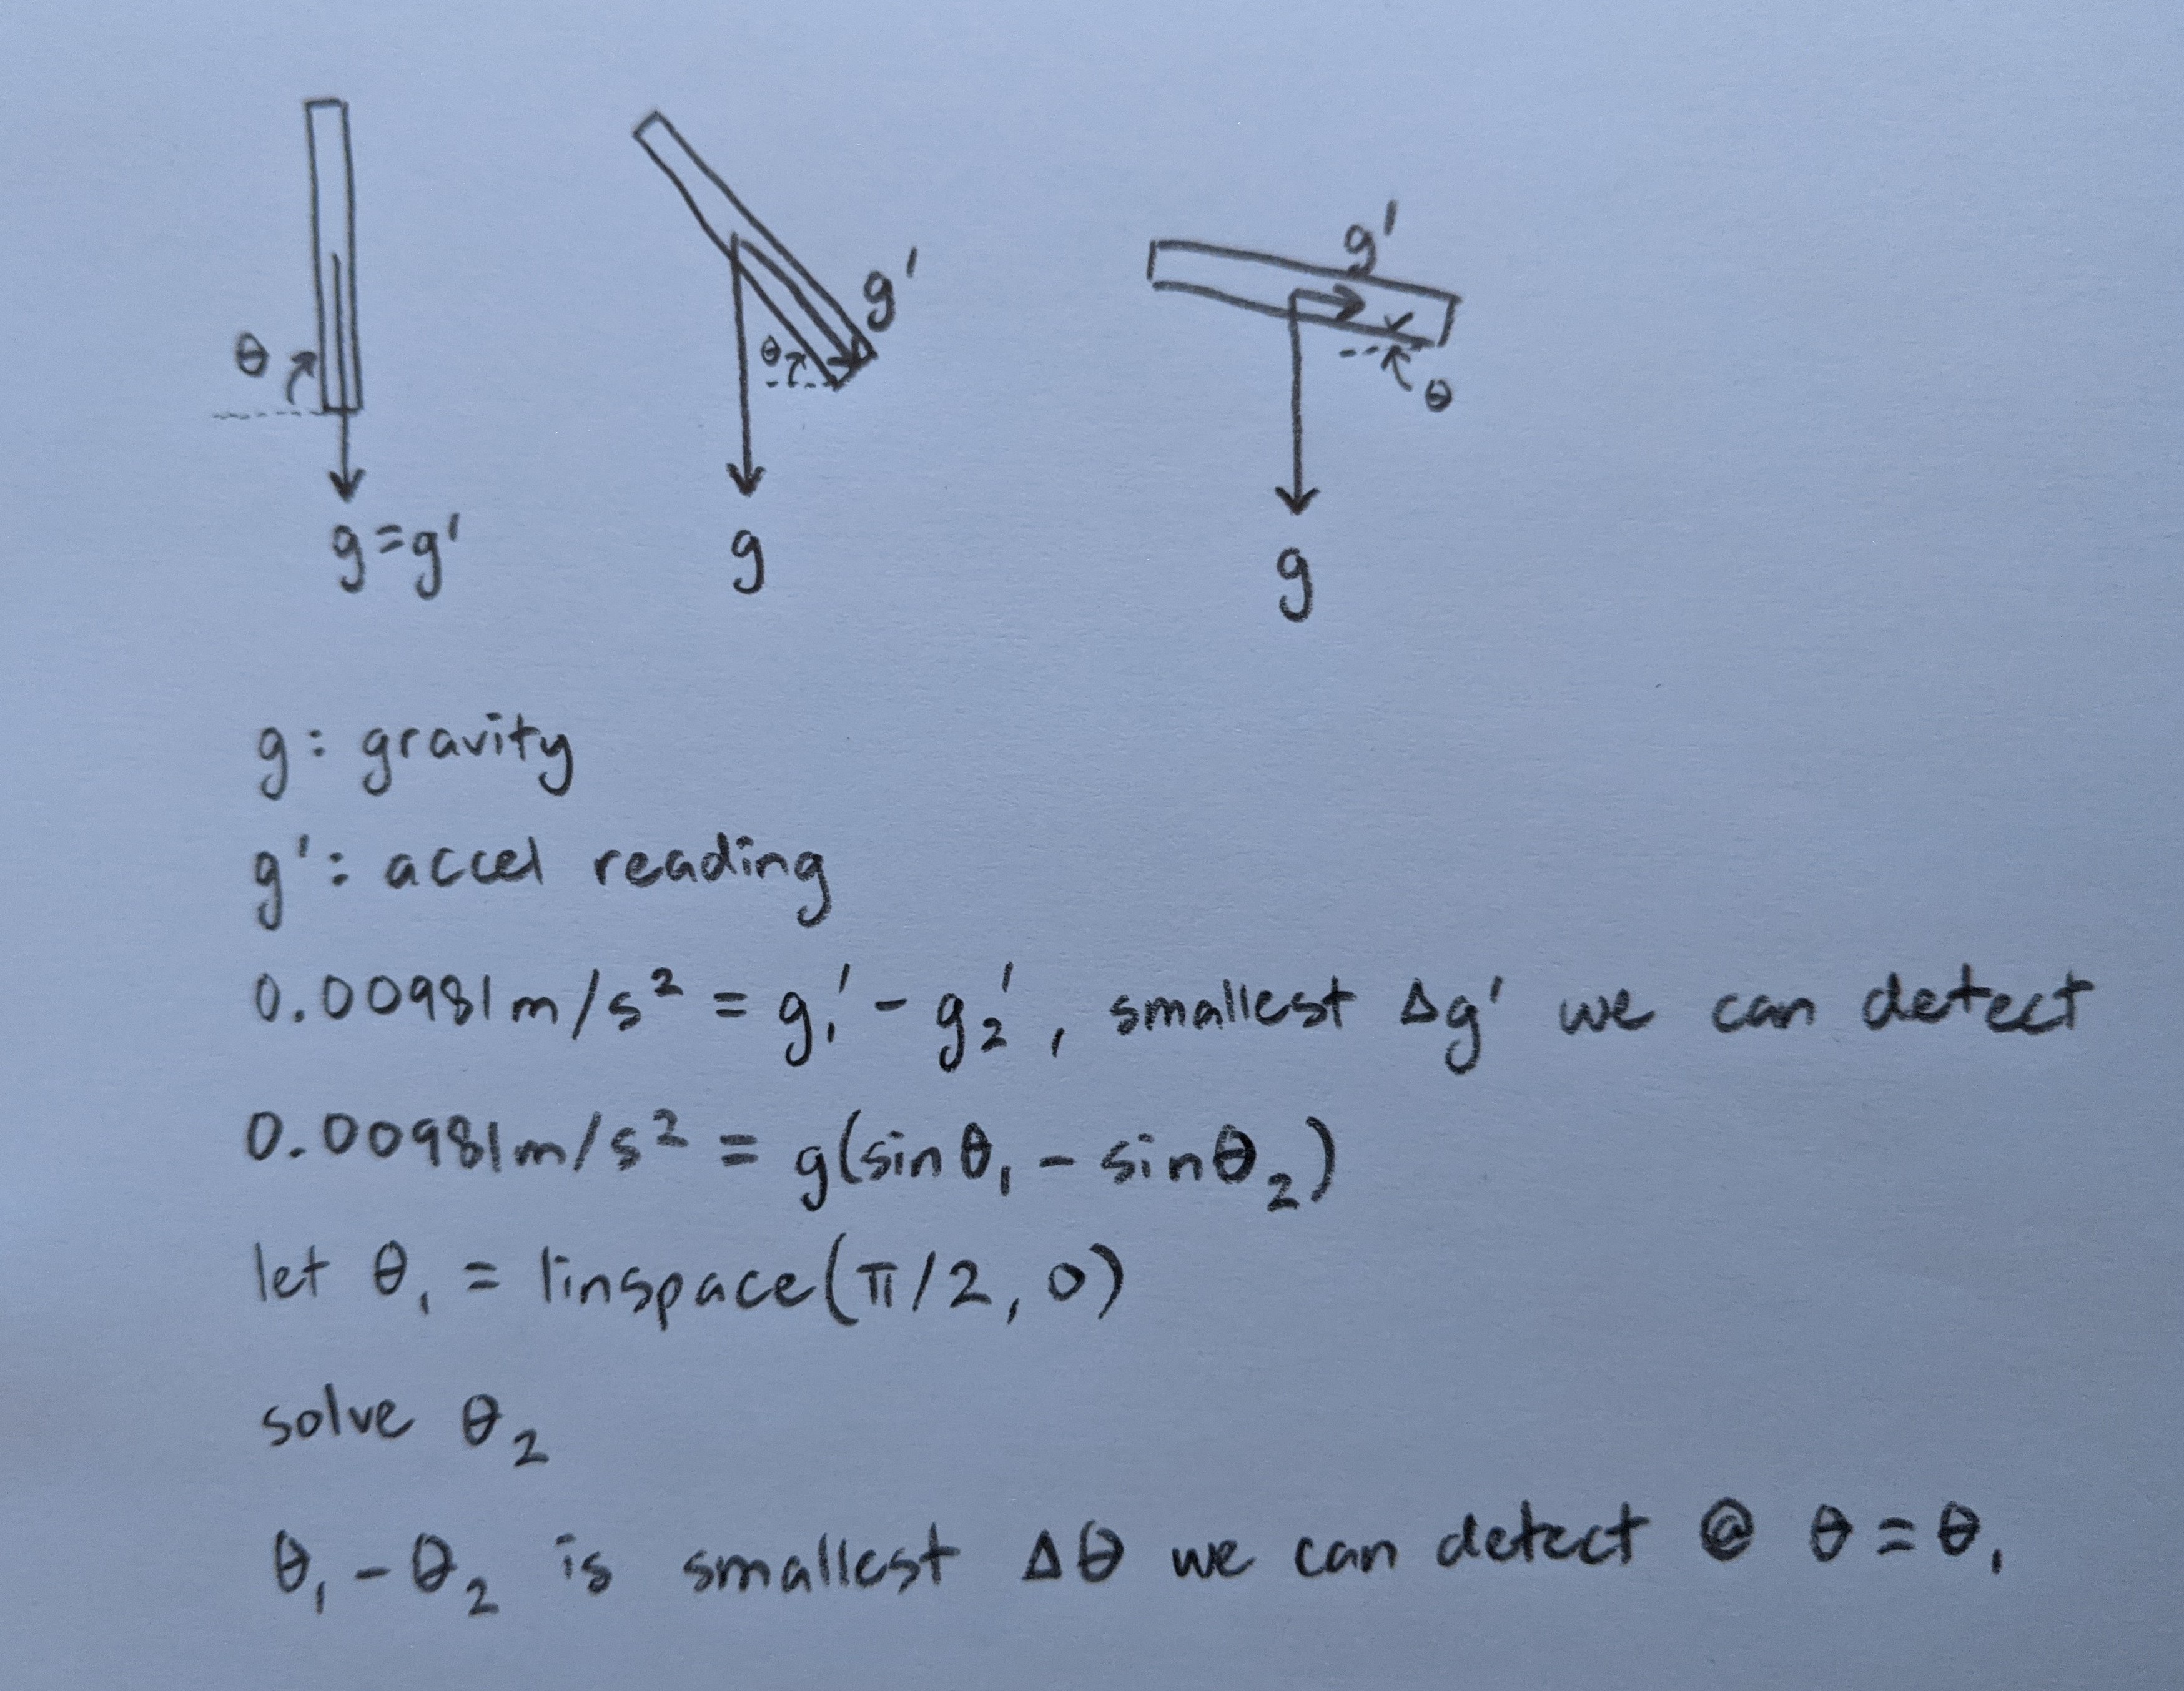 θ
g=g'
θ
g'
g
g'
θ
g
g: gravity
g': accel reading
0.00981m/s² = g₁' - g₂', smallest Δg' we can detect
0.00981m/s² = g(sinθ₁ - sinθ₂)
let θ₁ = linspace(π/2, 0)
solve θ₂
θ₁ - θ₂ is smallest Δθ we can detect @ θ = θ₁